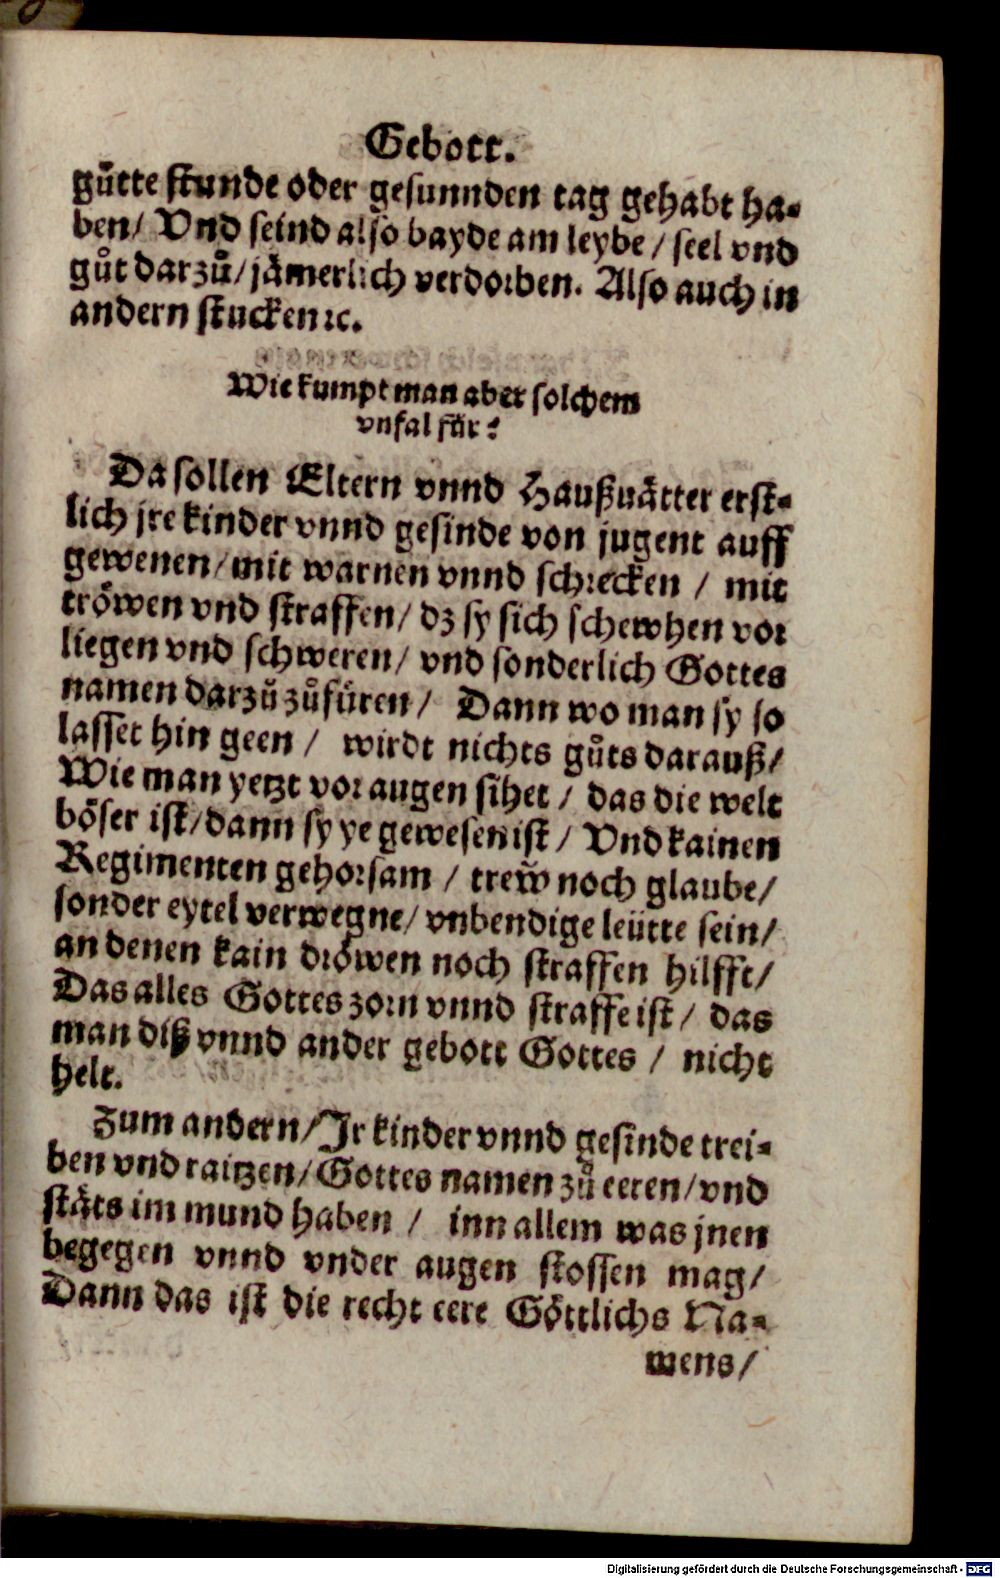 Gebott.
gůtte stunde oder gesunnden tag gehabt ha-
ben/ Vnd seind also bayde am leybe / seel vnd
gůt darzů/ jämerlich verdorben. Also auch in
andern stucken ꝛc.
Wie kumpt man aber solchem
vnfal für?
Da sollen Eltern vnnd Haußuätter erst-
lich jre kinder vnnd gesinde von jugent auff
gewenen/ mit warnen vnnd schrecken / mit
tröwen vnd straffen/ dz sy sich schewhen vor
liegen vnd schweren/ vnd sonderlich Gottes
namen darzů zůfüren / Dann wo man sy so
lasset hin geen / wirdt nichts gůts darauß/
Wie man yetzt vor augen sihet / das die welt
böser ist/ dann sy ye gewesen ist / Vnd kainen
Regimenten gehorsam / trew̃ noch glaube/
sonder eytel verwegne/ vnbendige leütte sein/
an denen kain dröwen noch straffen hilfft/
Das alles Gottes zorn vnnd straffe ist / das
man diß vnnd ander gebott Gottes / nicht
helt.
Zum andern/ Jr kinder vnnd gesinde trei-
ben vnd raitzen/ Gottes namen zů eeren/ vnd
stäts im mund haben / inn allem was jnen
begegen vnnd vnder augen stossen mag/
Dann das ist die recht eere Göttlichs Na-
mens/
Digitalisierung gefördert durch die Deutsche Forschungsgemeinschaft - DFG